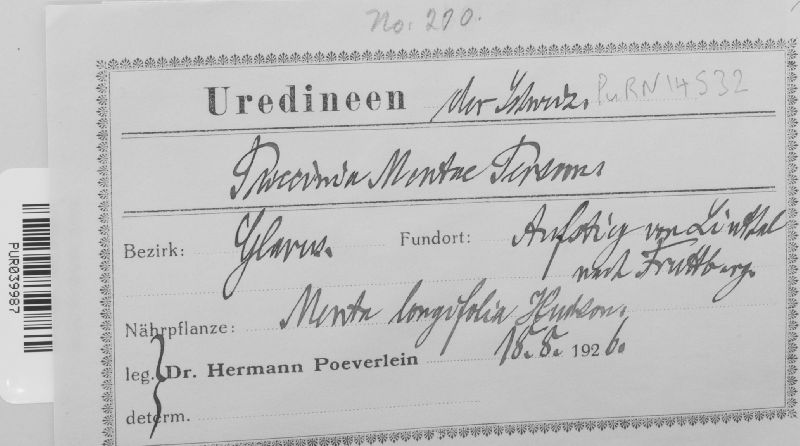 No. 270.
Uredineen der Schweiz. PURN14532
Puccinia Mentae Persoon.
Bezirk: Glarus. Fundort: Aufstieg von Linthal
nach Fruttberg.
Nährpflanze: Menta longifolia Hudson.
leg. Dr. Hermann Poeverlein 18. 8. 1926.
determ.
PUR039987